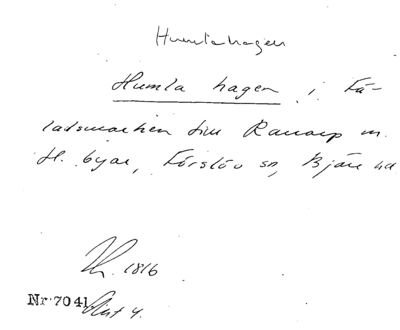 Humlahagen
Humla hagen i Fä-
ladsmarken till Ranarp m.
fl. byar, Förslöv sn, Bjäre hd
1816
Nr 7041 Akt 4.